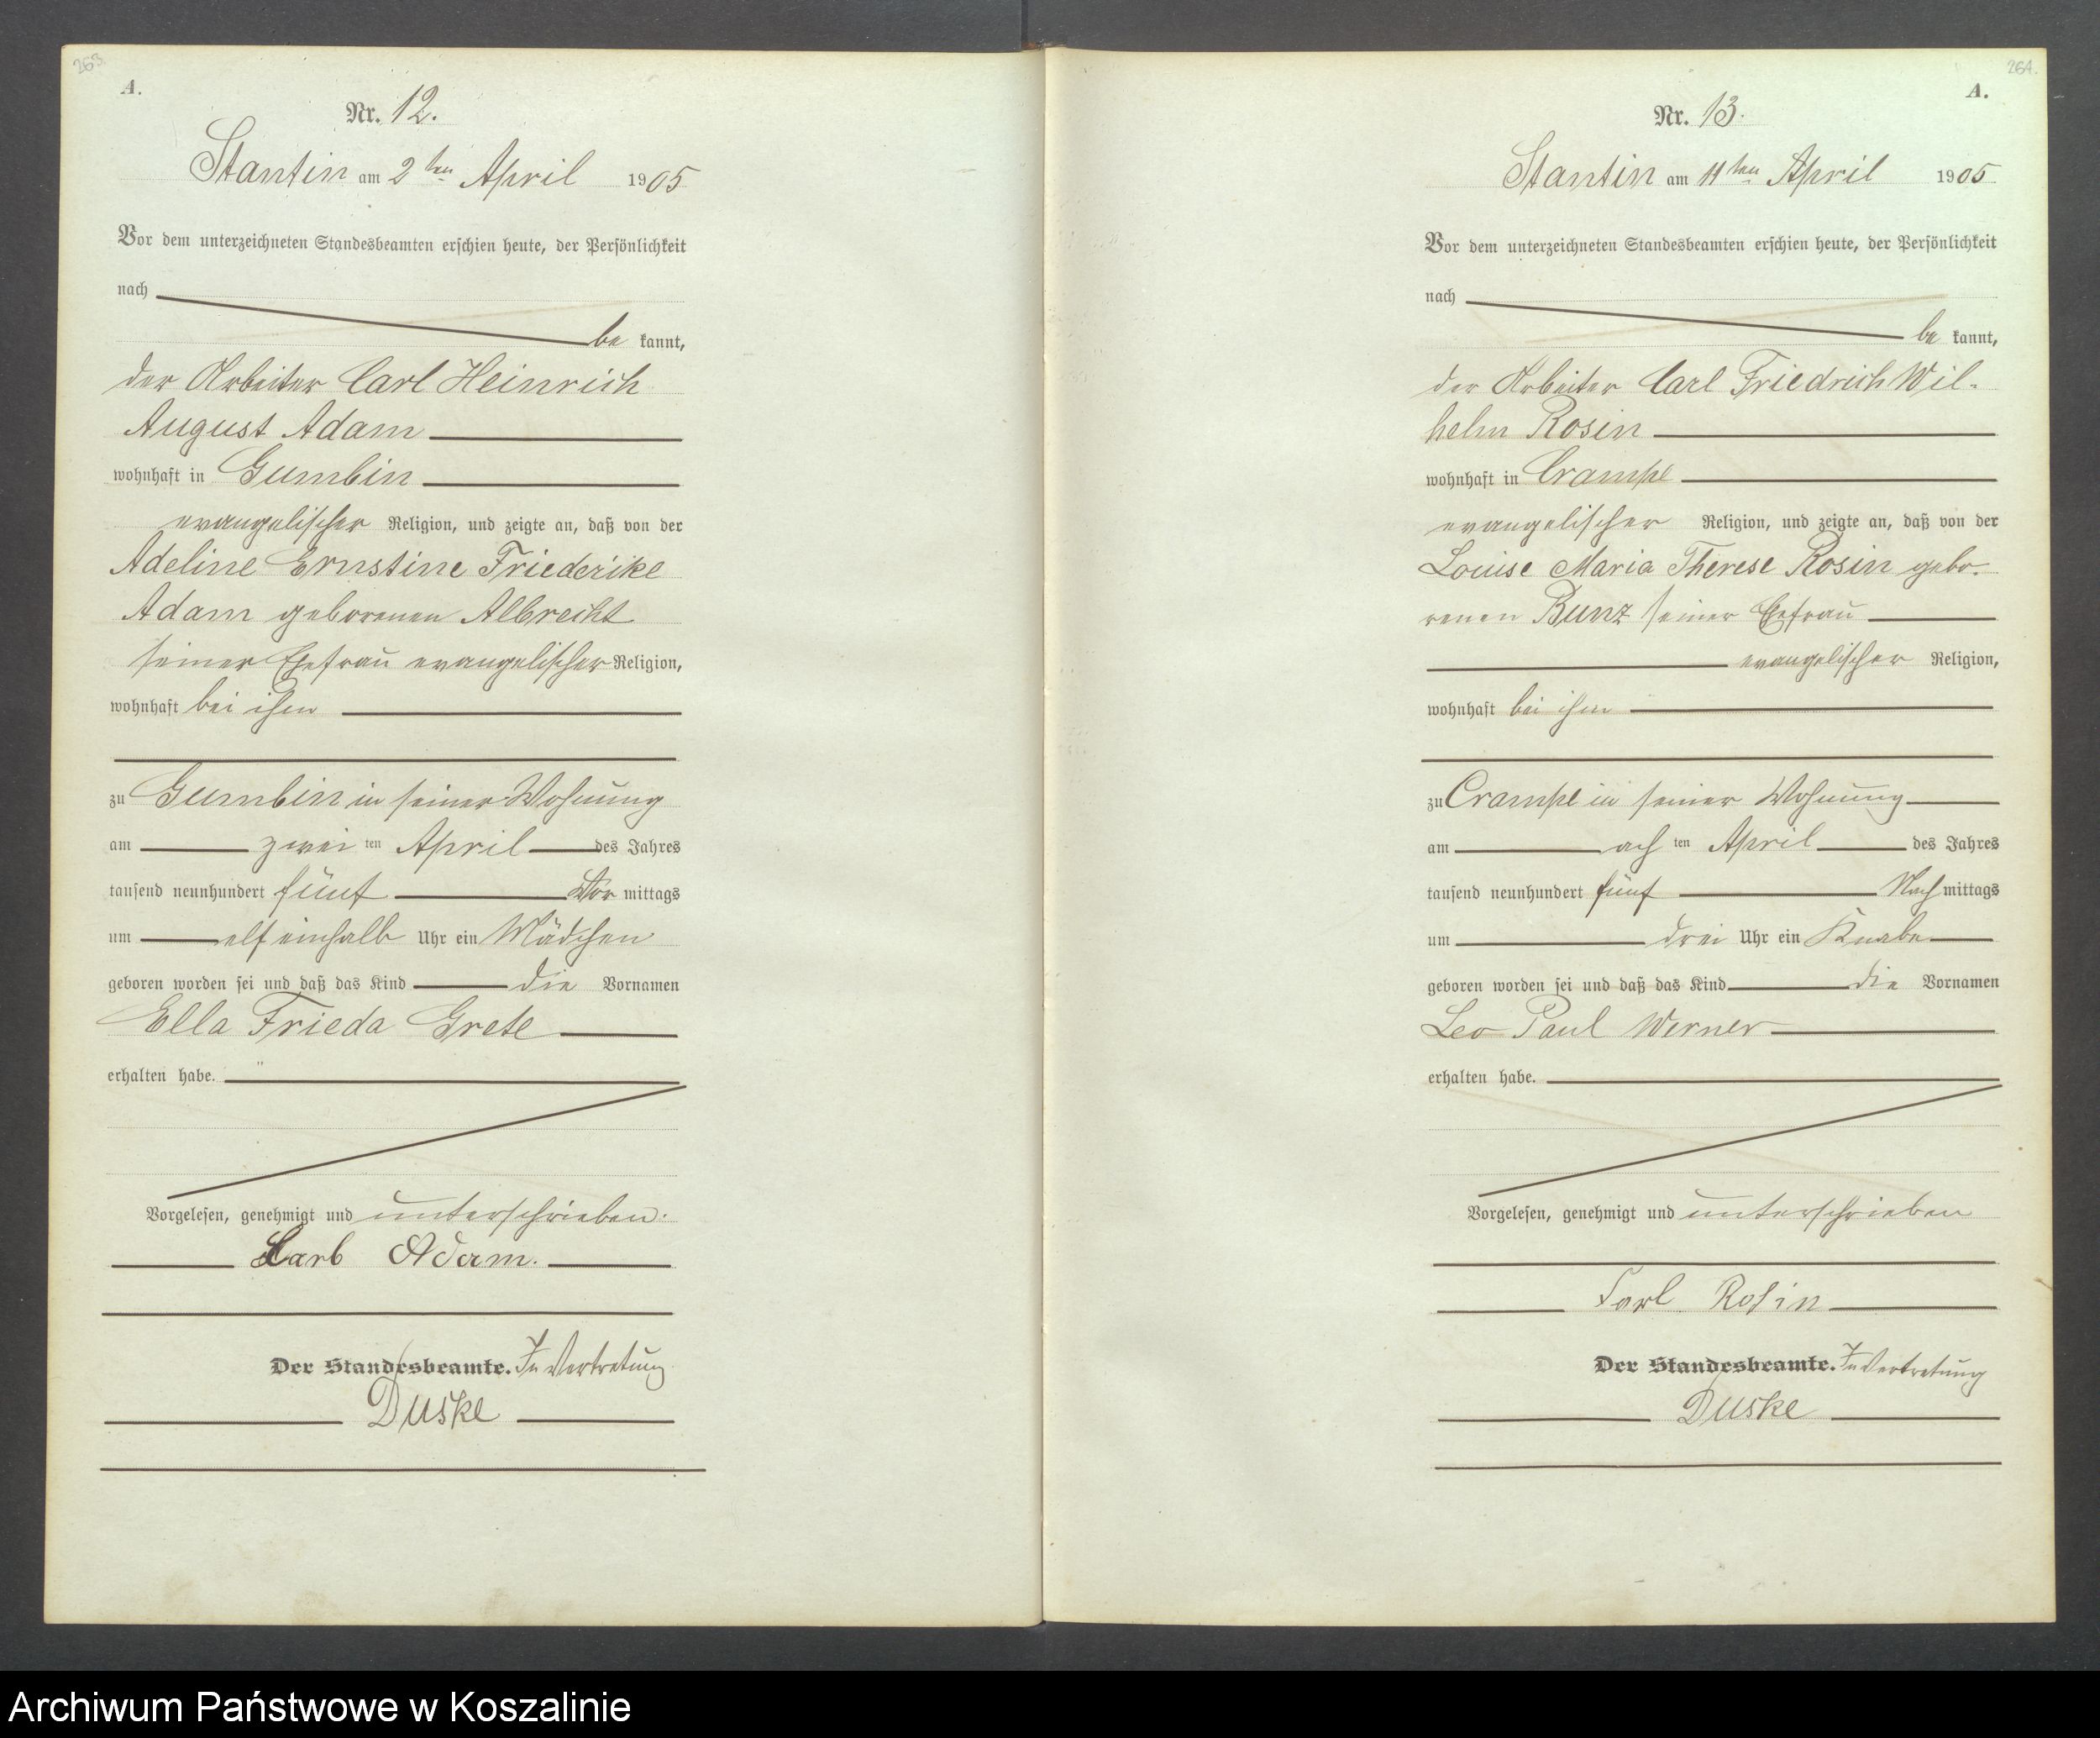 263.
A.
Nr. 12.
Stantin am 2ten April 1905
Vor dem unterzeichneten Standesbeamten erschien heute, der Persönlichkeit
nach
be kannt,
der Arbeiter Carl Heinrich
August Adam
wohnhaft in Gumbin
evangelischer Religion, und zeigte an, daß von der
Adeline Ernstine Friederike
Adam geborenen Albrecht
seiner Ehefrau evangelischer Religion,
wohnhaft bei ihm
zu Gumbin in seiner Wohnung
am zwei ten April des Jahres
tausend neunhundert fünf Vor mittags
um elf einhalb Uhr ein Mädchen
geboren worden sei und daß das Kind die Vornamen
Ella Frieda Grete
erhalten habe.
Vorgelesen, genehmigt und unterschrieben.
Carl Adam.
Der Standesbeamte. In Vertretung.
Duske
264.
A.
Nr. 13.
Stantin am 11ten April 1905
Vor dem unterzeichneten Standesbeamten erschien heute, der Persönlichkeit
nach
be kannt,
der Arbeiter Carl Friedrich Wil-
helm Rosin
wohnhaft in Crampe
evangelischer Religion, und zeigte an, daß von der
Louise Maria Therese Rosin gebo-
renen Bunz seiner Ehefrau
evangelischer Religion,
wohnhaft bei ihm
zu Crampe in seiner Wohnung
am ach ten April des Jahres
tausend neunhundert fünf Nach mittags
um drei Uhr ein Knabe
geboren worden sei und daß das Kind die Vornamen
Leo Paul Werner
erhalten habe.
Vorgelesen, genehmigt und unterschrieben
Carl Rosin
Der Standesbeamte. In Vertretung
Duske
Archiwum Państwowe w Koszalinie